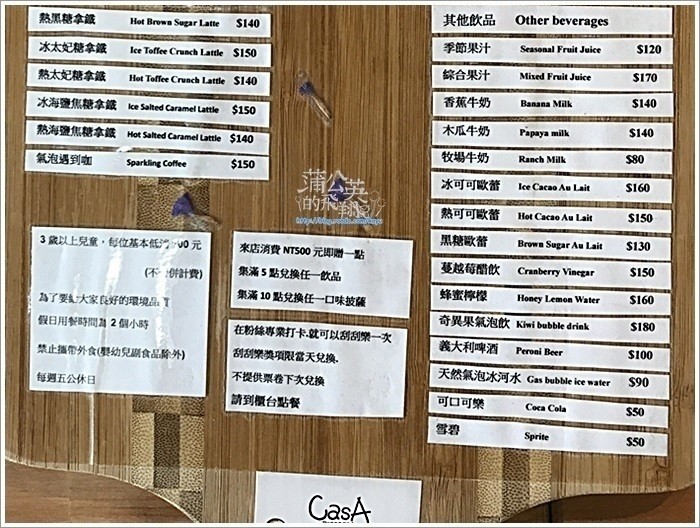 熱黑糖拿鐵 Hot Brown Sugar Latte $140
冰太妃糖拿鐵 Ice Toffee Crunch Lattle $150
熱太妃糖拿鐵 Hot Toffee Crunch Lattle $140
冰海鹽焦糖拿鐵 Ice Salted Caramel Lattle $150
熱海鹽焦糖拿鐵 Hot Salted Caramel Lattle $140
氣泡遇到咖 Sparkling Coffee $150
3 歲以上兒童，每位基本低消 00 元
(不 併計費)
為了要給大家良好的環境品質
假日用餐時間為 2 個小時
禁止攜帶外食(嬰幼兒副食品除外)
每週五公休日
蒲公英
的飛翔旅
http://blog.xuite.com/kayu
來店消費 NT500 元即贈一點
集滿 5 點兌換任一飲品
集滿 10 點兌換任一口味披薩
在粉絲專業打卡.就可以刮刮樂一次
刮刮樂獎項限當天兌換.
不提供票卷下次兌換
請到櫃台點餐
其他飲品 Other beverages
季節果汁 Seasonal Fruit Juice $120
綜合果汁 Mixed Fruit Juice $170
香蕉牛奶 Banana Milk $140
木瓜牛奶 Papaya milk $140
牧場牛奶 Ranch Milk $80
冰可可歐蕾 Ice Cacao Au Lait $160
熱可可歐蕾 Hot Cacao Au Lait $150
黑糖歐蕾 Brown Sugar Au Lait $130
蔓越莓醋飲 Cranberry Vinegar $150
蜂蜜檸檬 Honey Lemon Water $160
奇異果氣泡飲 Kiwi bubble drink $180
義大利啤酒 Peroni Beer $100
天然氣泡冰河水 Gas bubble ice water $90
可口可樂 Coca Cola $50
雪碧 Sprite $50
CasA